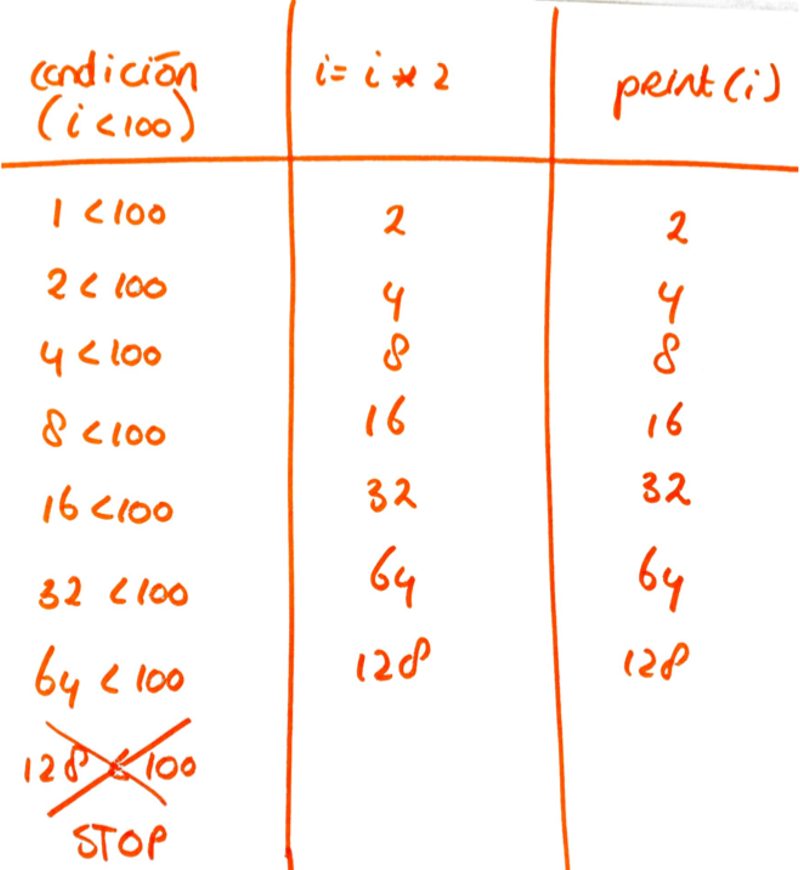 condición i = i * 2 print(i)
(i < 100)
1 < 100 2 2
2 < 100 4 4
4 < 100 8 8
8 < 100 16 16
16 < 100 32 32
32 < 100 64 64
64 < 100 128 128
128 < 100
STOP